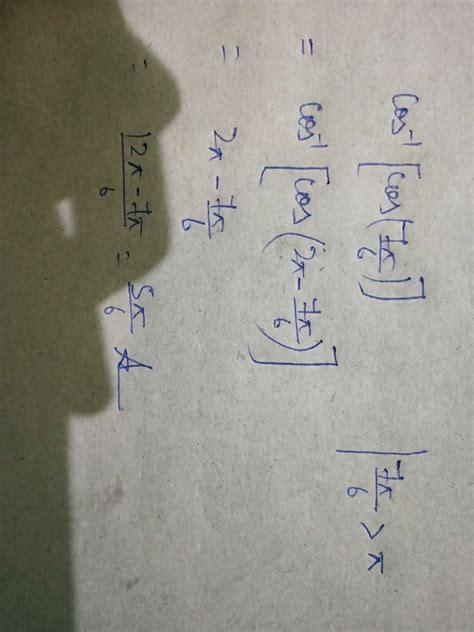 cos⁻¹[cos(7π/6)] | 7π/6 > π
= cos⁻¹[cos(2π - 7π/6)]
= 2π - 7π/6
= 12π - 7π/6 = 5π/6 A